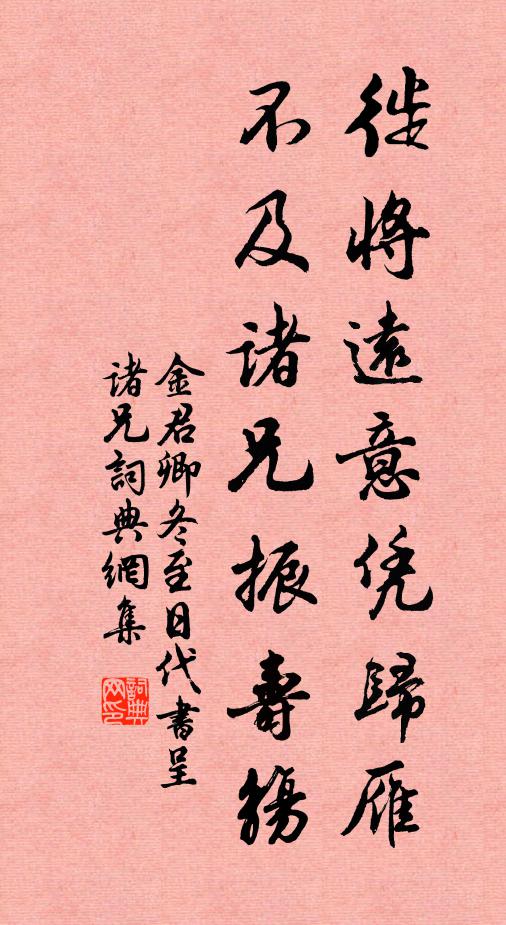 徒將遠意凭歸雁
不及诸兄振壽觴
金君卿冬至日代書呈
诸兄詞典網集
詞典网印